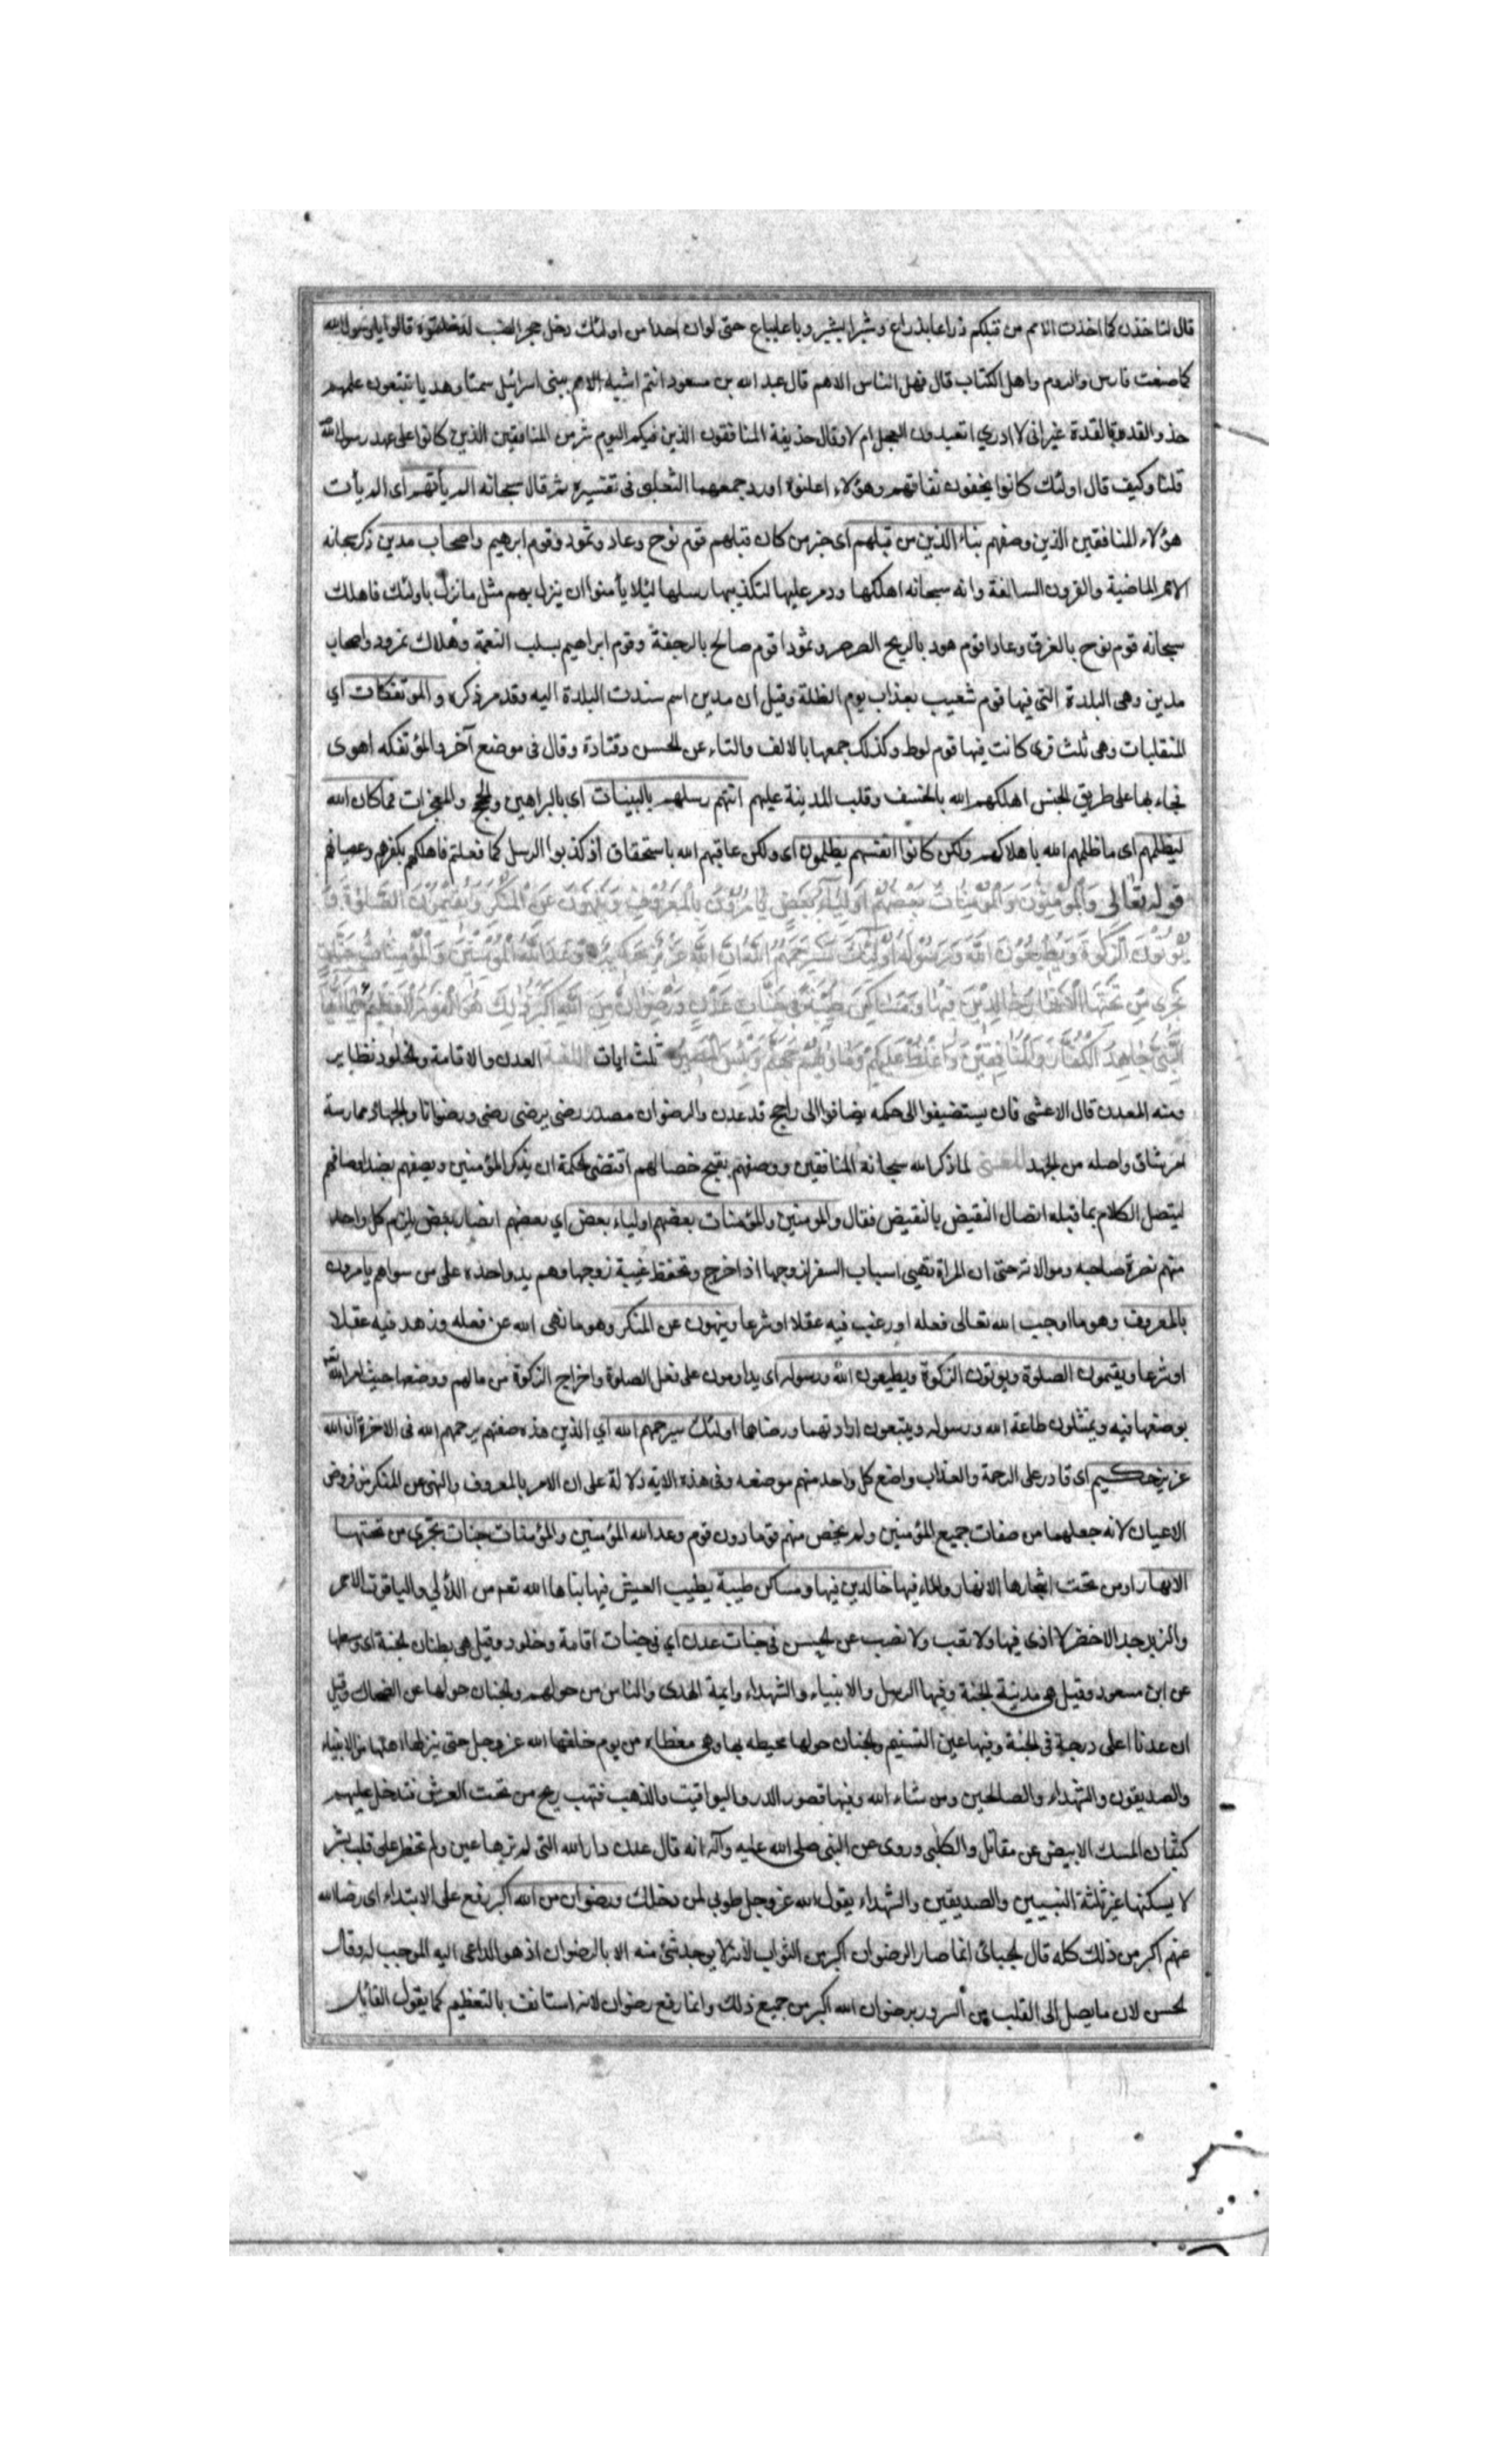 قال لتاخذن كما اخذت الامم من قبلكم ذراعا بذراع وشبرا بشبر وباعا بباع حتى لو ان احدا من اولئك دخل جحر الضب لدخلتموه قالوا يا رسول الله
كما صنعت فارس والروم واهل الكتاب قال فهل الناس الا هم قال عبد الله بن مسعود انتم اشبه الامم ببنى اسرائيل سمتا وهديا تتبعون عملهم
حذو القذة بالقذة غير انى لا ادري اتعبدون العجل ام لا وقال حذيفة المنافقون الذين فيكم اليوم شر من المنافقين الذين كانوا على عهد رسول الله
قلنا وكيف قال اولئك كانوا يخفون نفاقهم وهؤلاء اعلنوه اورد جميعها الثعلبى فى تفسيره ثم قال سبحانه الم يأتهم اى الم يأت
هؤلاء المنافقين الذين وصفهم نبأ الذين من قبلهم اى خبر من كان قبلهم قوم نوح وعاد وثمود وقوم ابرهيم واصحاب مدين ذكر سبحانه
الامم الماضية والقرون السالفة وانه سبحانه اهلكها ودمر عليها لتكذيبها رسلها لئلا يأمنوا ان ينزل بهم مثل ما نزل باولئك فاهلك
سبحانه قوم نوح بالغرق وعادا قوم هود بالريح الصرصر وثمودا قوم صالح بالرجفة وقوم ابراهيم بسلب النعمة وهلاك نمرود واصحاب
مدين وهى البلدة التى فيها قوم شعيب بعذاب يوم الظلة وقيل ان مدين اسم سندت البلدة اليه وقد مر ذكره والموتفكات اي
المنقلبات وهى ثلث قرى كانت فيها قوم لوط وكذلك جمعها بالالف والتاء عن الحسن وقتادة وقال فى موضع آخر والمؤتفكه اهوى
فجاء بها على طريق الجنس اهلكهم الله بالخسف وقلب المدينة عليهم اتتهم رسلهم بالبينات اى بالبراهين والحجج والمعجزات فما كان الله
ليظلمهم اى ما ظلمهم الله باهلاكهم ولكن كانوا انفسهم يظلمون اى ولكن عاقبهم الله باستحقاق اذ كذبوا الرسل كما فعلتم فاهلكهم بكفرهم وعصيانهم
قوله تعالى وَالْمُؤْمِنُونَ وَالْمُؤْمِنَاتُ بَعْضُهُمْ أَوْلِيَاءُ بَعْضٍ يَأْمُرُونَ بِالْمَعْرُوفِ وَيَنْهَوْنَ عَنِ الْمُنْكَرِ وَيُقِيمُونَ الصَّلوةَ وَ
يُؤْتُونَ الزَّكوةَ وَيُطِيعُونَ اللّٰهَ وَرَسُولَهُ أُولٰئِكَ سَيَرْحَمُهُمُ اللّٰهُ إِنَّ اللّٰهَ عَزِيزٌ حَكِيمٌ وَعَدَ اللّٰهُ الْمُؤْمِنِينَ وَالْمُؤْمِنَاتِ جَنَّاتٍ
تَجْرِى مِنْ تَحْتِهَا الْأَنْهَارُ خَالِدِينَ فِيهَا وَمَسَاكِنَ طَيِّبَةً فِى جَنَّاتِ عَدْنٍ وَرِضْوَانٌ مِنَ اللّٰهِ أَكْبَرُ ذٰلِكَ هُوَ الْفَوْزُ الْعَظِيمُ يَا أَيُّهَا
النَّبِىُّ جَاهِدِ الْكُفَّارَ وَالْمُنَافِقِينَ وَاغْلُظْ عَلَيْهِمْ وَمَأْوٰيهُمْ جَهَنَّمُ وَبِئْسَ الْمَصِيرُ ثلث ايات اللغة العدن والاقامة والخلود نظاير
ومنه المعدن قال الاعشى فان يستضيفوا الى حكمه يضافوا الى راجح قد عدن والرضوان مصدر رضى يرضى رضى ورضوانا والجهاد ممارسة
امر شاق واصله من الجهد المعنى لما ذكر الله سبحانه المنافقين ووصفهم بقبيح خصالهم اقتضى الحكمة ان يذكر المؤمنين ويصفهم بضد اوصافهم
ليتصل الكلام بما قبله اتصال النقيض بالنقيض فقال والمومنين والمؤمنات بعضهم اولياء بعض اي بعضهم انصار بعض يلزم كل واحد
منهم نصرة صاحبه وموالاته حتى ان المراة تهيى اسباب السفر لزوجها اذا خرج وتحفظ غيبة زوجها وهم يد واحدة على من سواهم يامرون
بالمعروف وهو ما اوجب الله تعالى فعله او رغب فيه عقلا او شرعا وينهون عن المنكر وهو ما نهى الله عن فعله وزهد فيه عقلا
او شرعا ويقيمون الصلوة ويوتون الزكوة ويطيعون الله ورسوله اى يداومون على فعل الصلوة واخراج الزكوة من مالهم ووضعها حيث امر الله
بوضعها فيه ويمتثلون طاعة الله ورسوله ويتبعون ارادتهما ورضاهما اولئك سيرحمهم الله اي الذين هذه صفتهم يرحمهم الله فى الاخرة ان الله
عزيز حكيم اى قادر على الرحمة والعذاب واضع كل واحد منهم موضعه وفى هذه الاية دلالة على ان الامر بالمعروف والنهى عن المنكر من فروض
الاعيان لانه جعلهما من صفات جميع المؤمنين ولم يخص منهم قوما دون قوم وعد الله المؤمنين والمؤمنات جنات تجرى من تحتها
الانهار اى من تحت اشجارها الانهار والماء فيها خالدين فيها ومساكن طيبة يطيب العيش فيها بناها الله تعم من اللآلي والياقوت الاحمر
والزبرجد الاخضر لا اذى فيها ولا تعب ولا نصب عن الحسن فى جنات عدن اي فى جنات اقامة وخلود وقيل هى بطنان الجنة اى وسطها
عن ابن مسعود وقيل هى مدينة الجنة وفيها الرسل والانبياء والشهداء وايمة الهدى والناس من حولهم والجنان حولها عن الضحاك وقيل
ان عدنا اعلى درجة فى الجنة وفيها عين التسنيم والجنان حولها محيطه بها وهى مغطاء من يوم خلقها الله عز وجل حتى ينزلها اهلها من الانبياء
والصديقون والشهداء والصالحين ومن شاء الله وفيها قصور الدر واليواقيت والذهب فتهب ريح من تحت العرش فتدخل عليهم
كثبان المسك الابيض عن مقاتل والكلبى وروى عن النبى صلى الله عليه وآله انه قال عدن دار الله التى لم ترها عين ولم تخطر على قلب بشر
لا يسكنها غير ثلثة النبيين والصديقين والشهداء يقول الله عز وجل طوبى لمن دخلك ورضوان من الله اكبر رفع على الابتداء اى رضا الله
عنهم اكبر من ذلك كله قال الجبائى انما صار الرضوان اكبر من الثواب لانه لا يوجد شئ منه الا بالرضوان اذ هو الداعى اليه الموجب له وقال
الحسن لان ما يصل الى القلب من السرور برضوان الله اكبر من جميع ذلك وانما رفع رضوان لانه استانف بالتعظيم كما يقول القائل